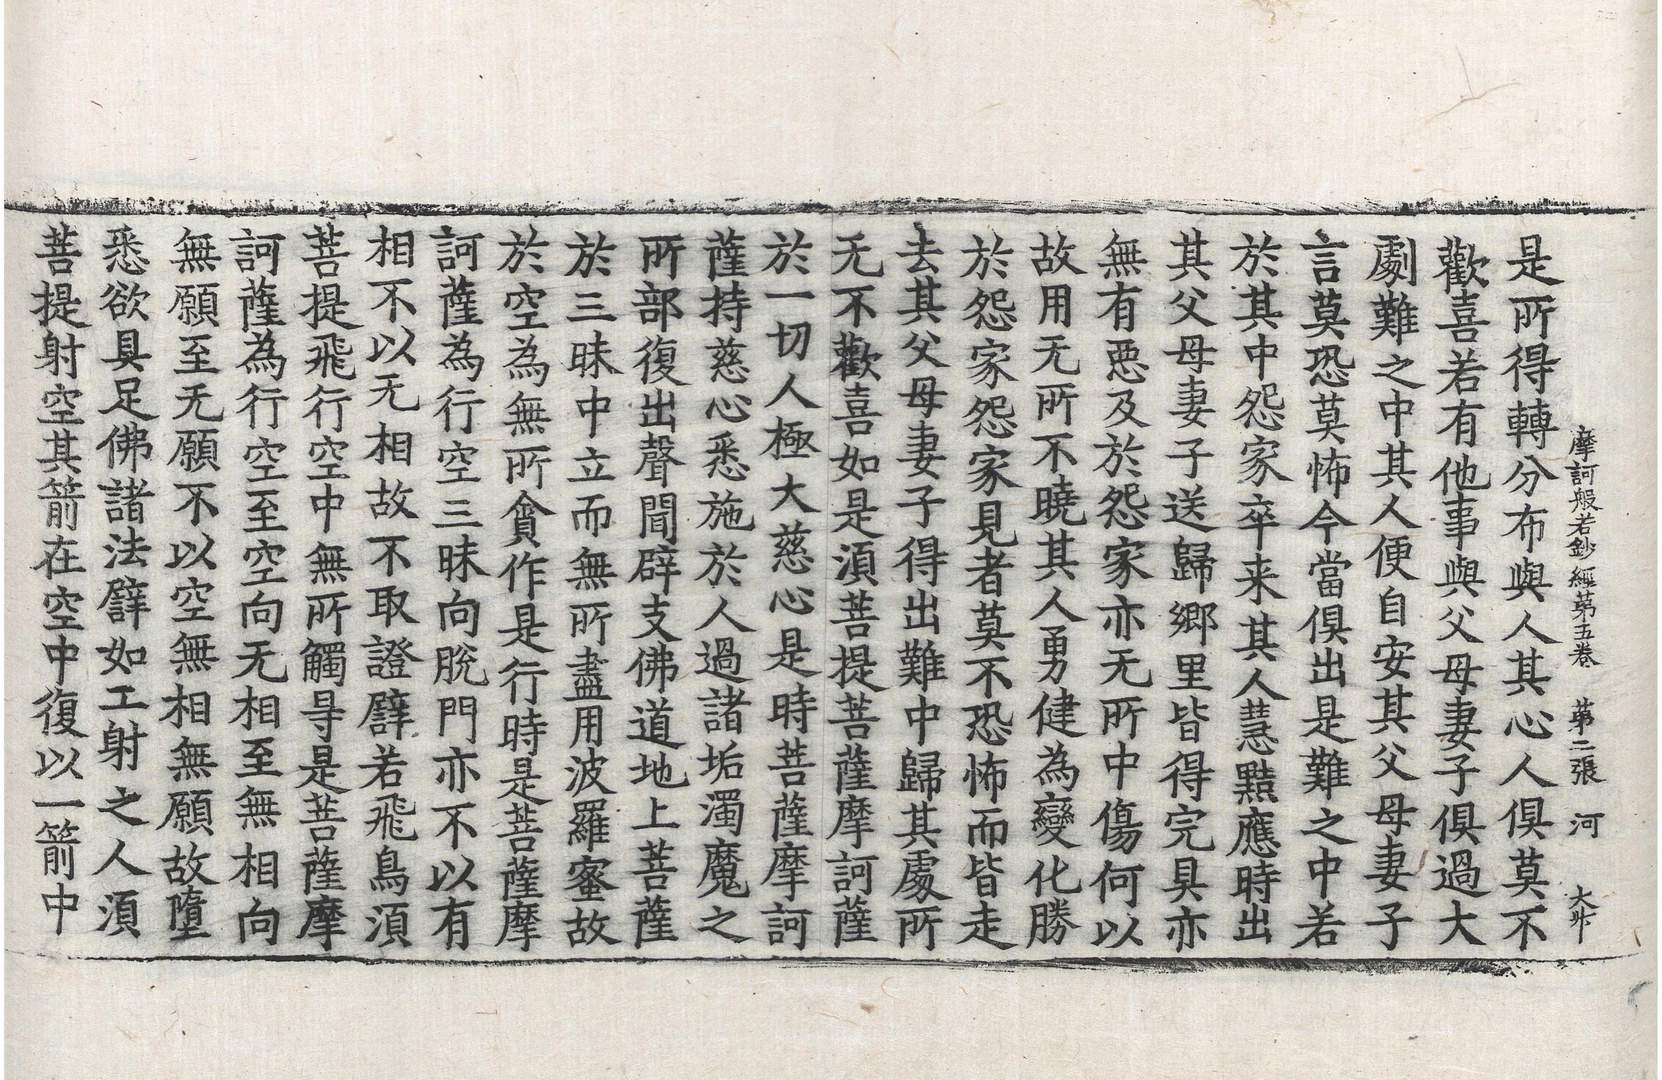 摩訶般若鈔經第五卷　第二張　河　大
是所得轉分布與人其心人俱莫不
歡喜若有他事與父母妻子俱過大
劇難之中其人便自安其父母妻子
言莫恐莫怖今當俱出是難之中若
於其中怨家卒来其人慧黠應時出
其父母妻子送歸鄉里皆得完具亦
無有惡及於怨家亦无所中傷何以
故用无所不曉其人勇健為變化勝
於怨家怨家見者莫不恐怖而皆走
去其父母妻子得出難中歸其處所
无不歡喜如是湏菩提菩薩摩訶薩
於一切人極大慈心是時菩薩摩訶
薩持慈心悉施於人過諸垢濁魔之
所部復出聲聞辟支佛道地上菩薩
於三昧中立而無所盡用波羅蜜故
於空為無所貪作是行時是菩薩摩
訶薩為行空三昧向脫門亦不以有
相不以无相故不取證譬若飛鳥湏
菩提飛行空中無所觸㝵是菩薩摩
訶薩為行空至空向无相至無相向
無願至无願不以空無相無願故墮
悉欲具足佛諸法譬如工射之人湏
菩提射空其箭在空中復以一箭中